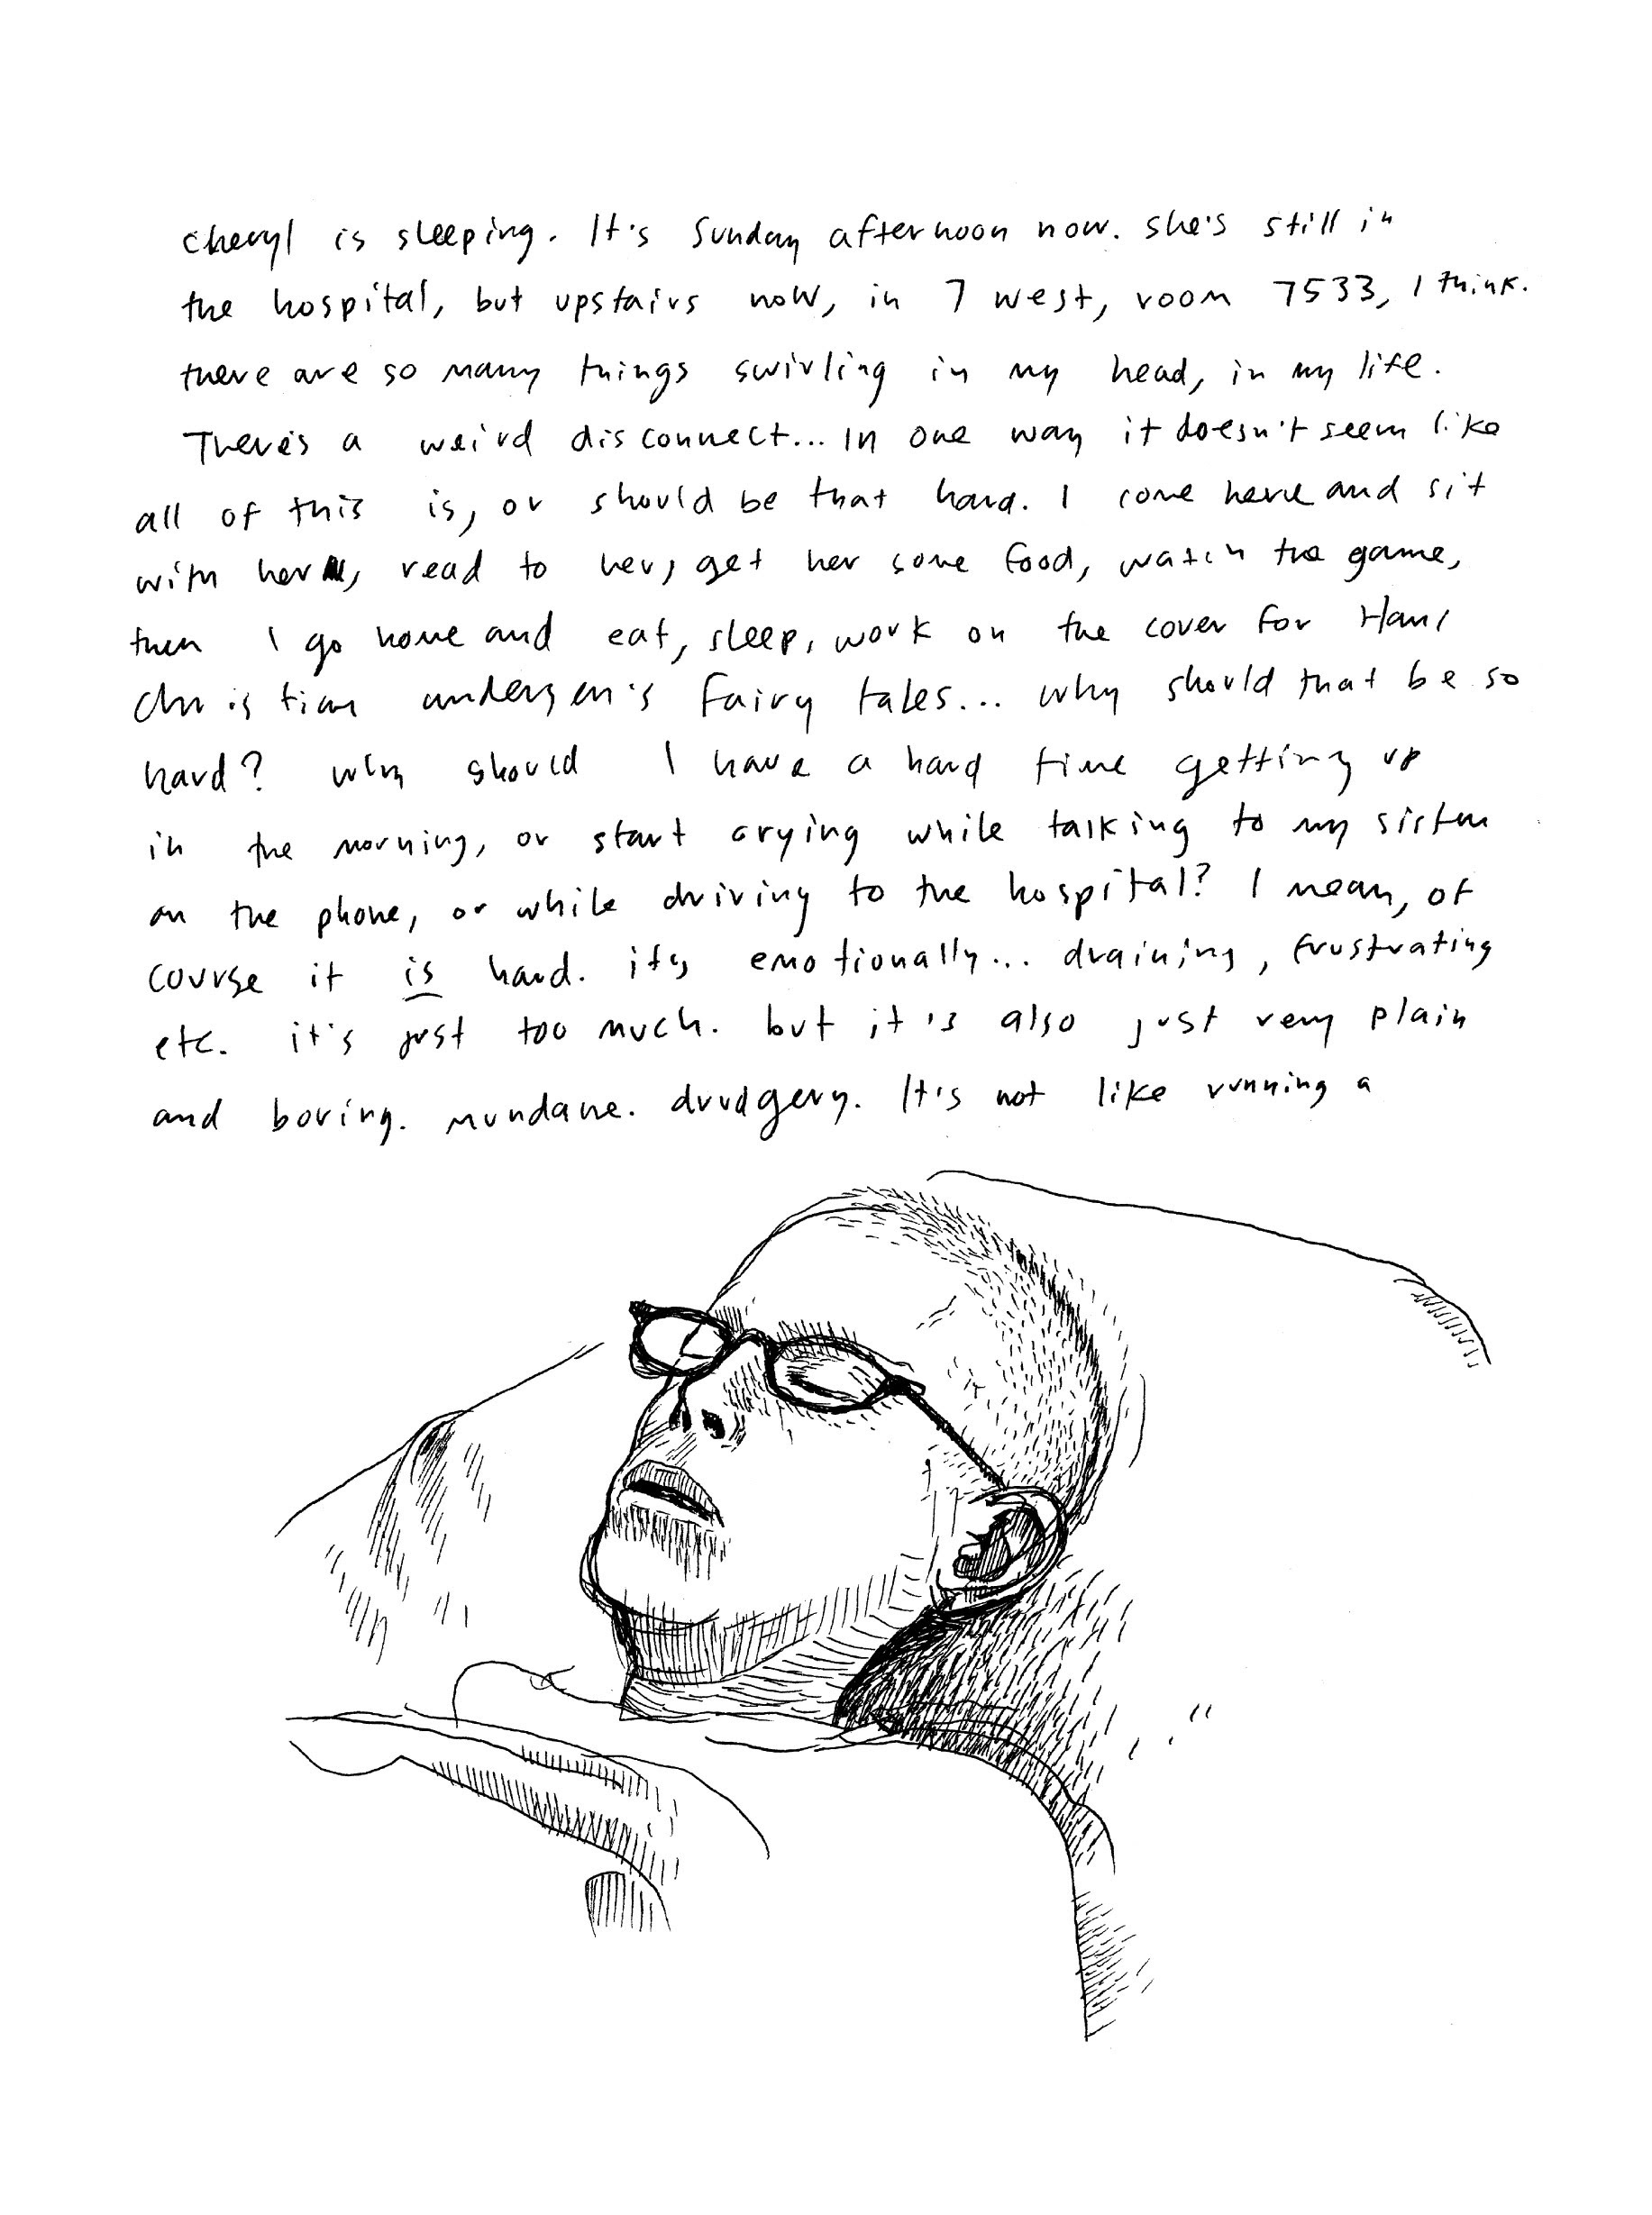 cheryl is sleeping. It's Sunday afternoon now. she's still in
the hospital, but upstairs now, in 7 west, room 7533, I think.
there are so many things swirling in my head, in my life.
There's a weird disconnect... In one way it doesn't seem like
all of this is, or should be that hard. I come here and sit
with her, read to her, get her some food, watch the game,
then I go home and eat, sleep, work on the cover for Hans
Christian andersen's Fairy tales... why should that be so
hard? why should I have a hard time getting up
in the morning, or start crying while talking to my sister
on the phone, or while driving to the hospital? I mean, of
course it is hard. it's emotionally... draining, frustrating
etc. it's just too much. but it's also just very plain
and boring. mundane. drudgery. It's not like running a